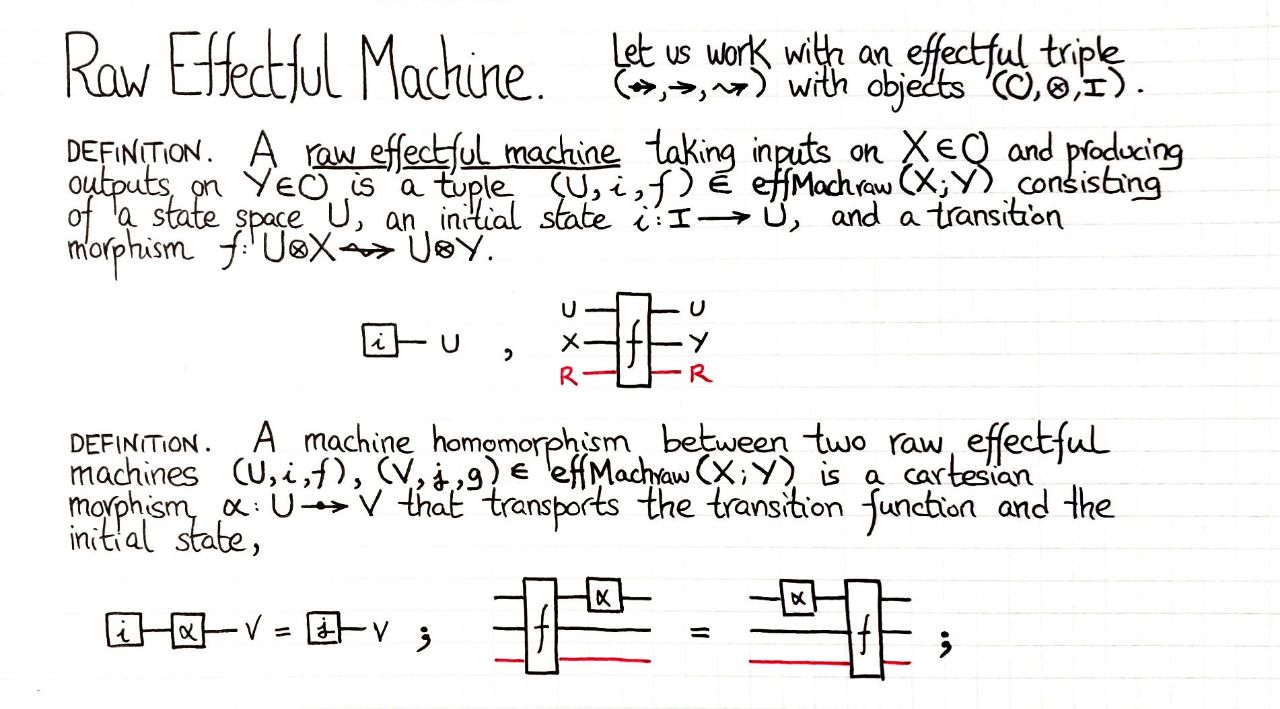 Raw Effectful Machine.
Let us work with an effectful triple
(⇸,→,⇝) with objects (O,⊗,I).
DEFINITION. A raw effectful machine taking inputs on X∈O and producing
outputs on Y∈O is a tuple (U,i,f) ∈ effMachraw(X;Y) consisting
of a state space U, an initial state i:I→U, and a transition
morphism f:U⊗X⇝U⊗Y.
i U , U X R f U Y R
DEFINITION. A machine homomorphism between two raw effectful
machines (U,i,f), (V,j,g) ∈ effMachraw(X;Y) is a cartesian
morphism α:U⇸V that transports the transition function and the
initial state,
i α V = j V ; f α = α f ;